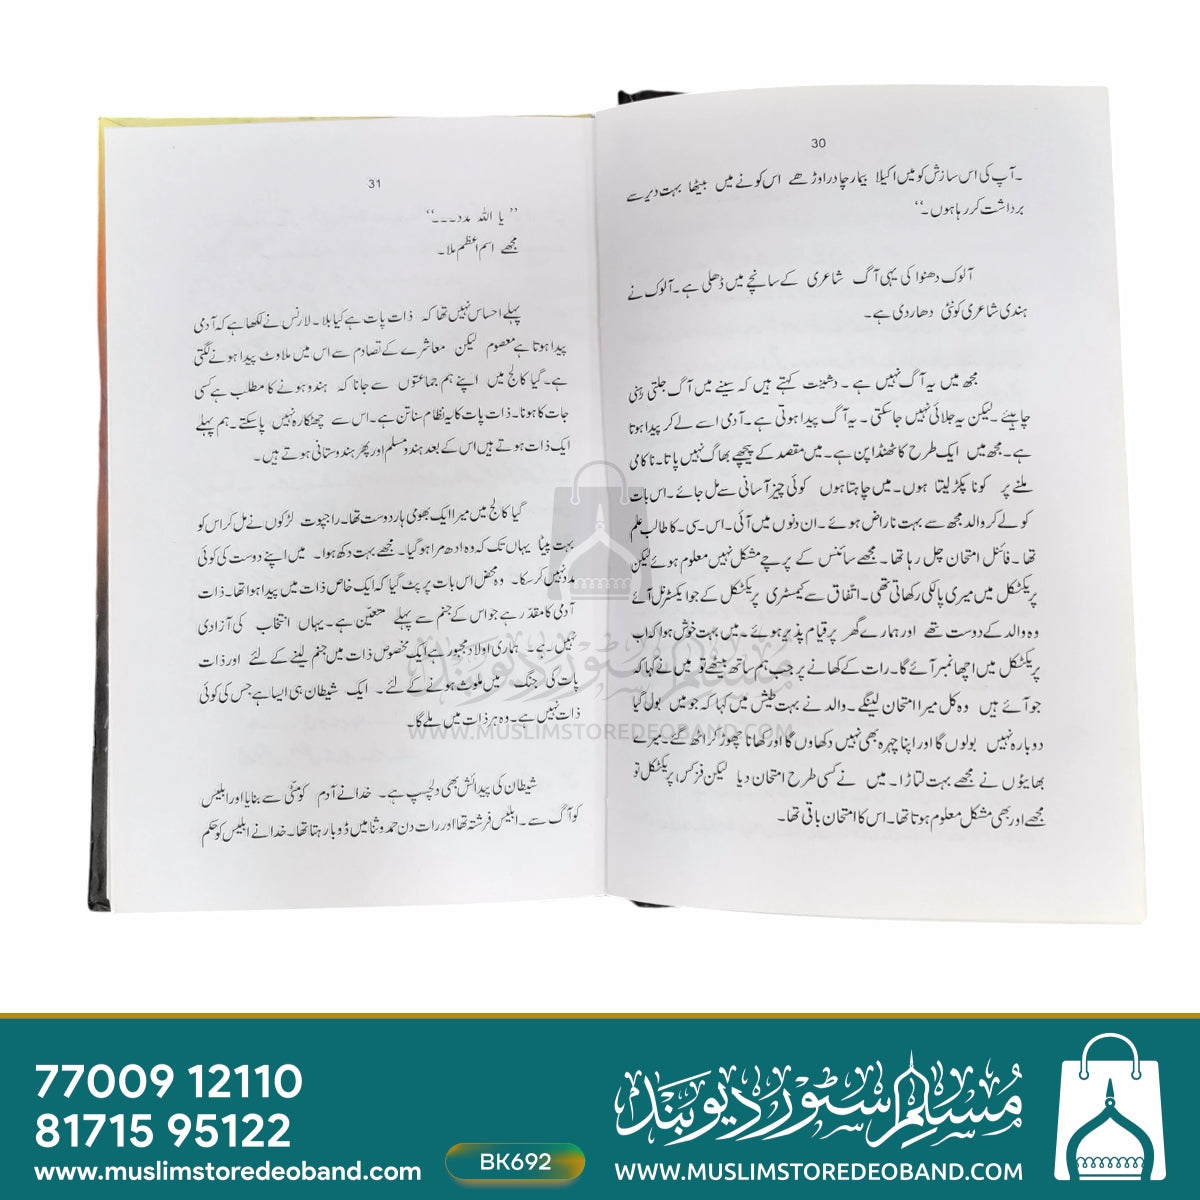 30
۔ آپ کی اس سازش کو میں اکیلا بیمار چادر اوڑھے اس کونے میں بیٹھا بہت دیر سے
برداشت کر رہا ہوں۔‘‘
آلوک دھنوا کی یہی آگ شاعری کے سانچے میں ڈھلی ہے۔ آلوک نے
ہندی شاعری کو نئی دھار دی ہے۔
مجھ میں یہ آگ نہیں ہے ۔ دشینت کہتے ہیں کہ سینے میں آگ جلتی رہنی
چاہئے ۔ لیکن یہ جلائی نہیں جا سکتی ۔ یہ آگ پیدا ہوتی ہے ۔ آدمی اسے لے کر پیدا ہوتا
ہے ۔ مجھ میں ایک طرح کا ٹھنڈا پن ہے ۔ میں مقصد کے پیچھے بھاگ نہیں پاتا۔ ناکامی
ملنے پر کونا پکڑ لیتا ہوں۔ میں چاہتا ہوں کوئی چیز آسانی سے مل جائے ۔ اس بات
کو لے کر والد مجھ سے بہت ناراض ہوئے ۔ ان دنوں میں آئی۔ اس۔ سی۔ کا طالب علم
تھا ۔ فائنل امتحان چل رہا تھا ۔ مجھے سائنس کے پرچے مشکل نہیں معلوم ہوئے لیکن
پریکٹکل میں میری پالکی رکھاتی تھی۔ اتفاق سے کیمسٹری پریکٹکل کے جو ایکسٹرنل آئے
وہ والد کے دوست تھے اور ہمارے گھر پر قیام پذیر ہوئے ۔ میں بہت خوش ہوا کہ اب
پریکٹکل میں اچھا نمبر آئے گا۔ رات کے کھانے پر جب ہم ساتھ بیٹھے تو میں نے کہا کہ
جو آئے ہیں وہ کل میرا امتحان لینگے۔ والد نے بہت طیش میں کہا کہ جو میں بولی گیا
دوبارہ نہیں بولوں گا اور اپنا چہرہ بھی نہیں دکھاوں گا اور کھانا چھوڑ کر اٹھ گئے۔ میرے
بھائیوں نے مجھے بہت لتاڑا ۔ میں نے کسی طرح امتحان دیا لیکن فزکس پریکٹکل تو
مجھے اور بھی مشکل معلوم ہوتا تھا۔ اس کا امتحان باقی تھا ۔
31
’’ یا اللہ مدد۔۔۔‘‘
مجھے اسم اعظم ملا ۔
پہلے احساس نہیں تھا کہ ذات پات ہے کیا بلا ۔ لارنس نے لکھا ہے کہ آدمی
پیدا ہوتا ہے معصوم لیکن معاشرے کے تصادم سے اس میں ملاوٹ پیدا ہونے لگتی
ہے۔ گیا کالج میں اپنے ہم جماعتوں سے جانا کہ ہندو ہونے کا مطلب ہے کسی
جات کا ہونا۔ ذات پات کا یہ نظام سناتن ہے۔ اس سے چھٹکارہ نہیں پا سکتے۔ ہم پہلے
ایک ذات ہوتے ہیں اس کے بعد ہندو مسلم اور پھر ہندوستانی ہوتے ہیں۔
گیا کالج میں میرا ایک بھومی ہار دوست تھا۔ راجپوت لڑکوں نے مل کر اس کو
بہت پیٹا یہاں تک کہ وہ ادھ مرا ہو گیا۔ مجھے بہت دکھ ہوا۔ میں اپنے دوست کی کوئی
مدد نہیں کر سکا۔ وہ محض اس بات پر پٹ گیا کہ ایک خاص ذات میں پیدا ہوا تھا۔ ذات
آدمی کا مقدر ہے جو اس کے جنم سے پہلے متعین ہے۔ یہاں انتخاب کی آزادی
نہیں ہے۔ ہماری اولاد مجبور ہے ایک مخصوص ذات میں جنم لینے کے لئے اور ذات
پات کی جنگ میں ملوث ہونے کے لئے ۔ ایک شیطان ہی ایسا ہے جس کی کوئی
ذات نہیں ہے۔ وہ ہر ذات میں ملے گا۔
شیطان کی پیدائش بھی دلچسپ ہے۔ خدا نے آدم کو مٹی سے بنایا اور ابلیس
کو آگ سے ۔ ابلیس فرشتہ تھا اور رات دن حمد و ثنا میں ڈوبا رہتا تھا۔ خدا نے ابلیس کو حکم
مسلم سٹور دیوبند
WWW.MUSLIMSTOREDEOBAND.COM
77009 12110
81715 95122
www.muslimstoredeoband.com
BK692
مسلم سٹور دیوبند
WWW.MUSLIMSTOREDEOBAND.COM